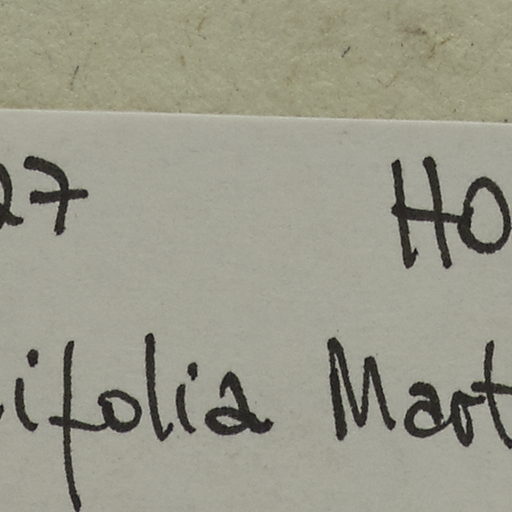 27 HO
ifolia Mart